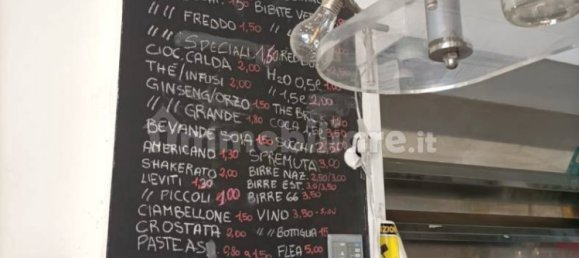 // // FREDDO 1,50
// // SPECIALI 1,50
CIOC. CALDA 2,00
THÈ/INFUSI 2,00
GINSENG/ORZO 1,50
// // GRANDE 1,80
BEVANDE SOIA 1,50
AMERICANO 1,30
SHAKERATO 2,00
LIEVITI 1,30
// PICCOLI 1,00
CIAMBELLONE 1,50
CROSTATA 2,00
PASTE AS.
BIBITE
RED
H2O 0,5L 1,00
// 1,5L 2,00
THE BR
COCA
SUCCHI 2,50
SPREMUTA 3,00
BIRRE NAZ. 2,50/3,00
BIRRE EST. 3,0/3,50
BIRRE 66 3,50
VINO 3,50 - 5,00
// // BOTTIGLIA 15
FLEA 5,00
immobiliare.it